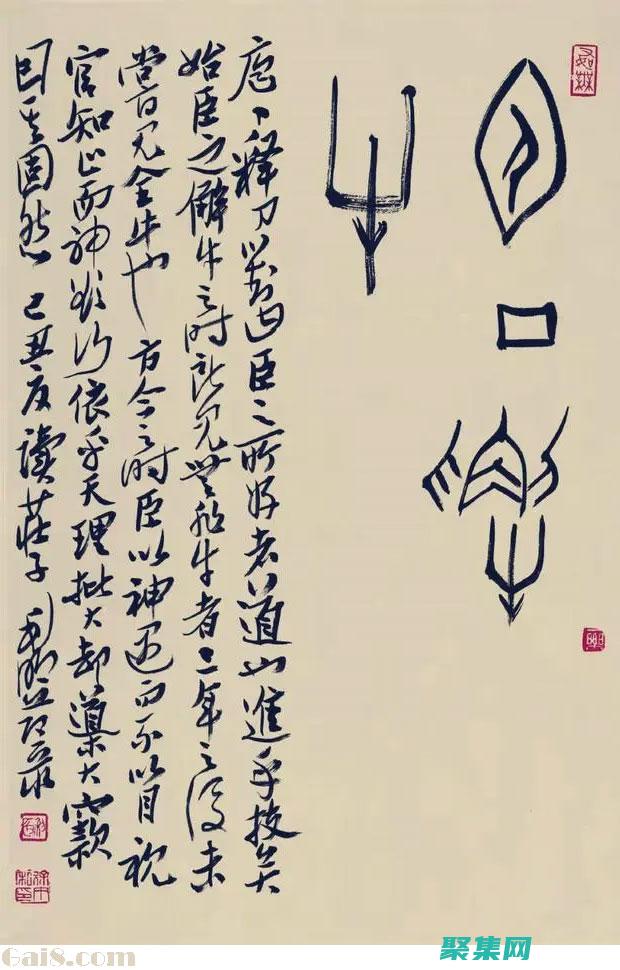 庖丁解
牛
庖丁釋刀以對曰臣之所好者道也進乎技矣
始臣之解牛之時所見無非牛者三年之後未
嘗見全牛也方今之時臣以神遇而不以目視
官知止而神欲行依乎天理批大郤導大窾
因其固然 己丑夏讀莊子
Gai8.com
聚集网